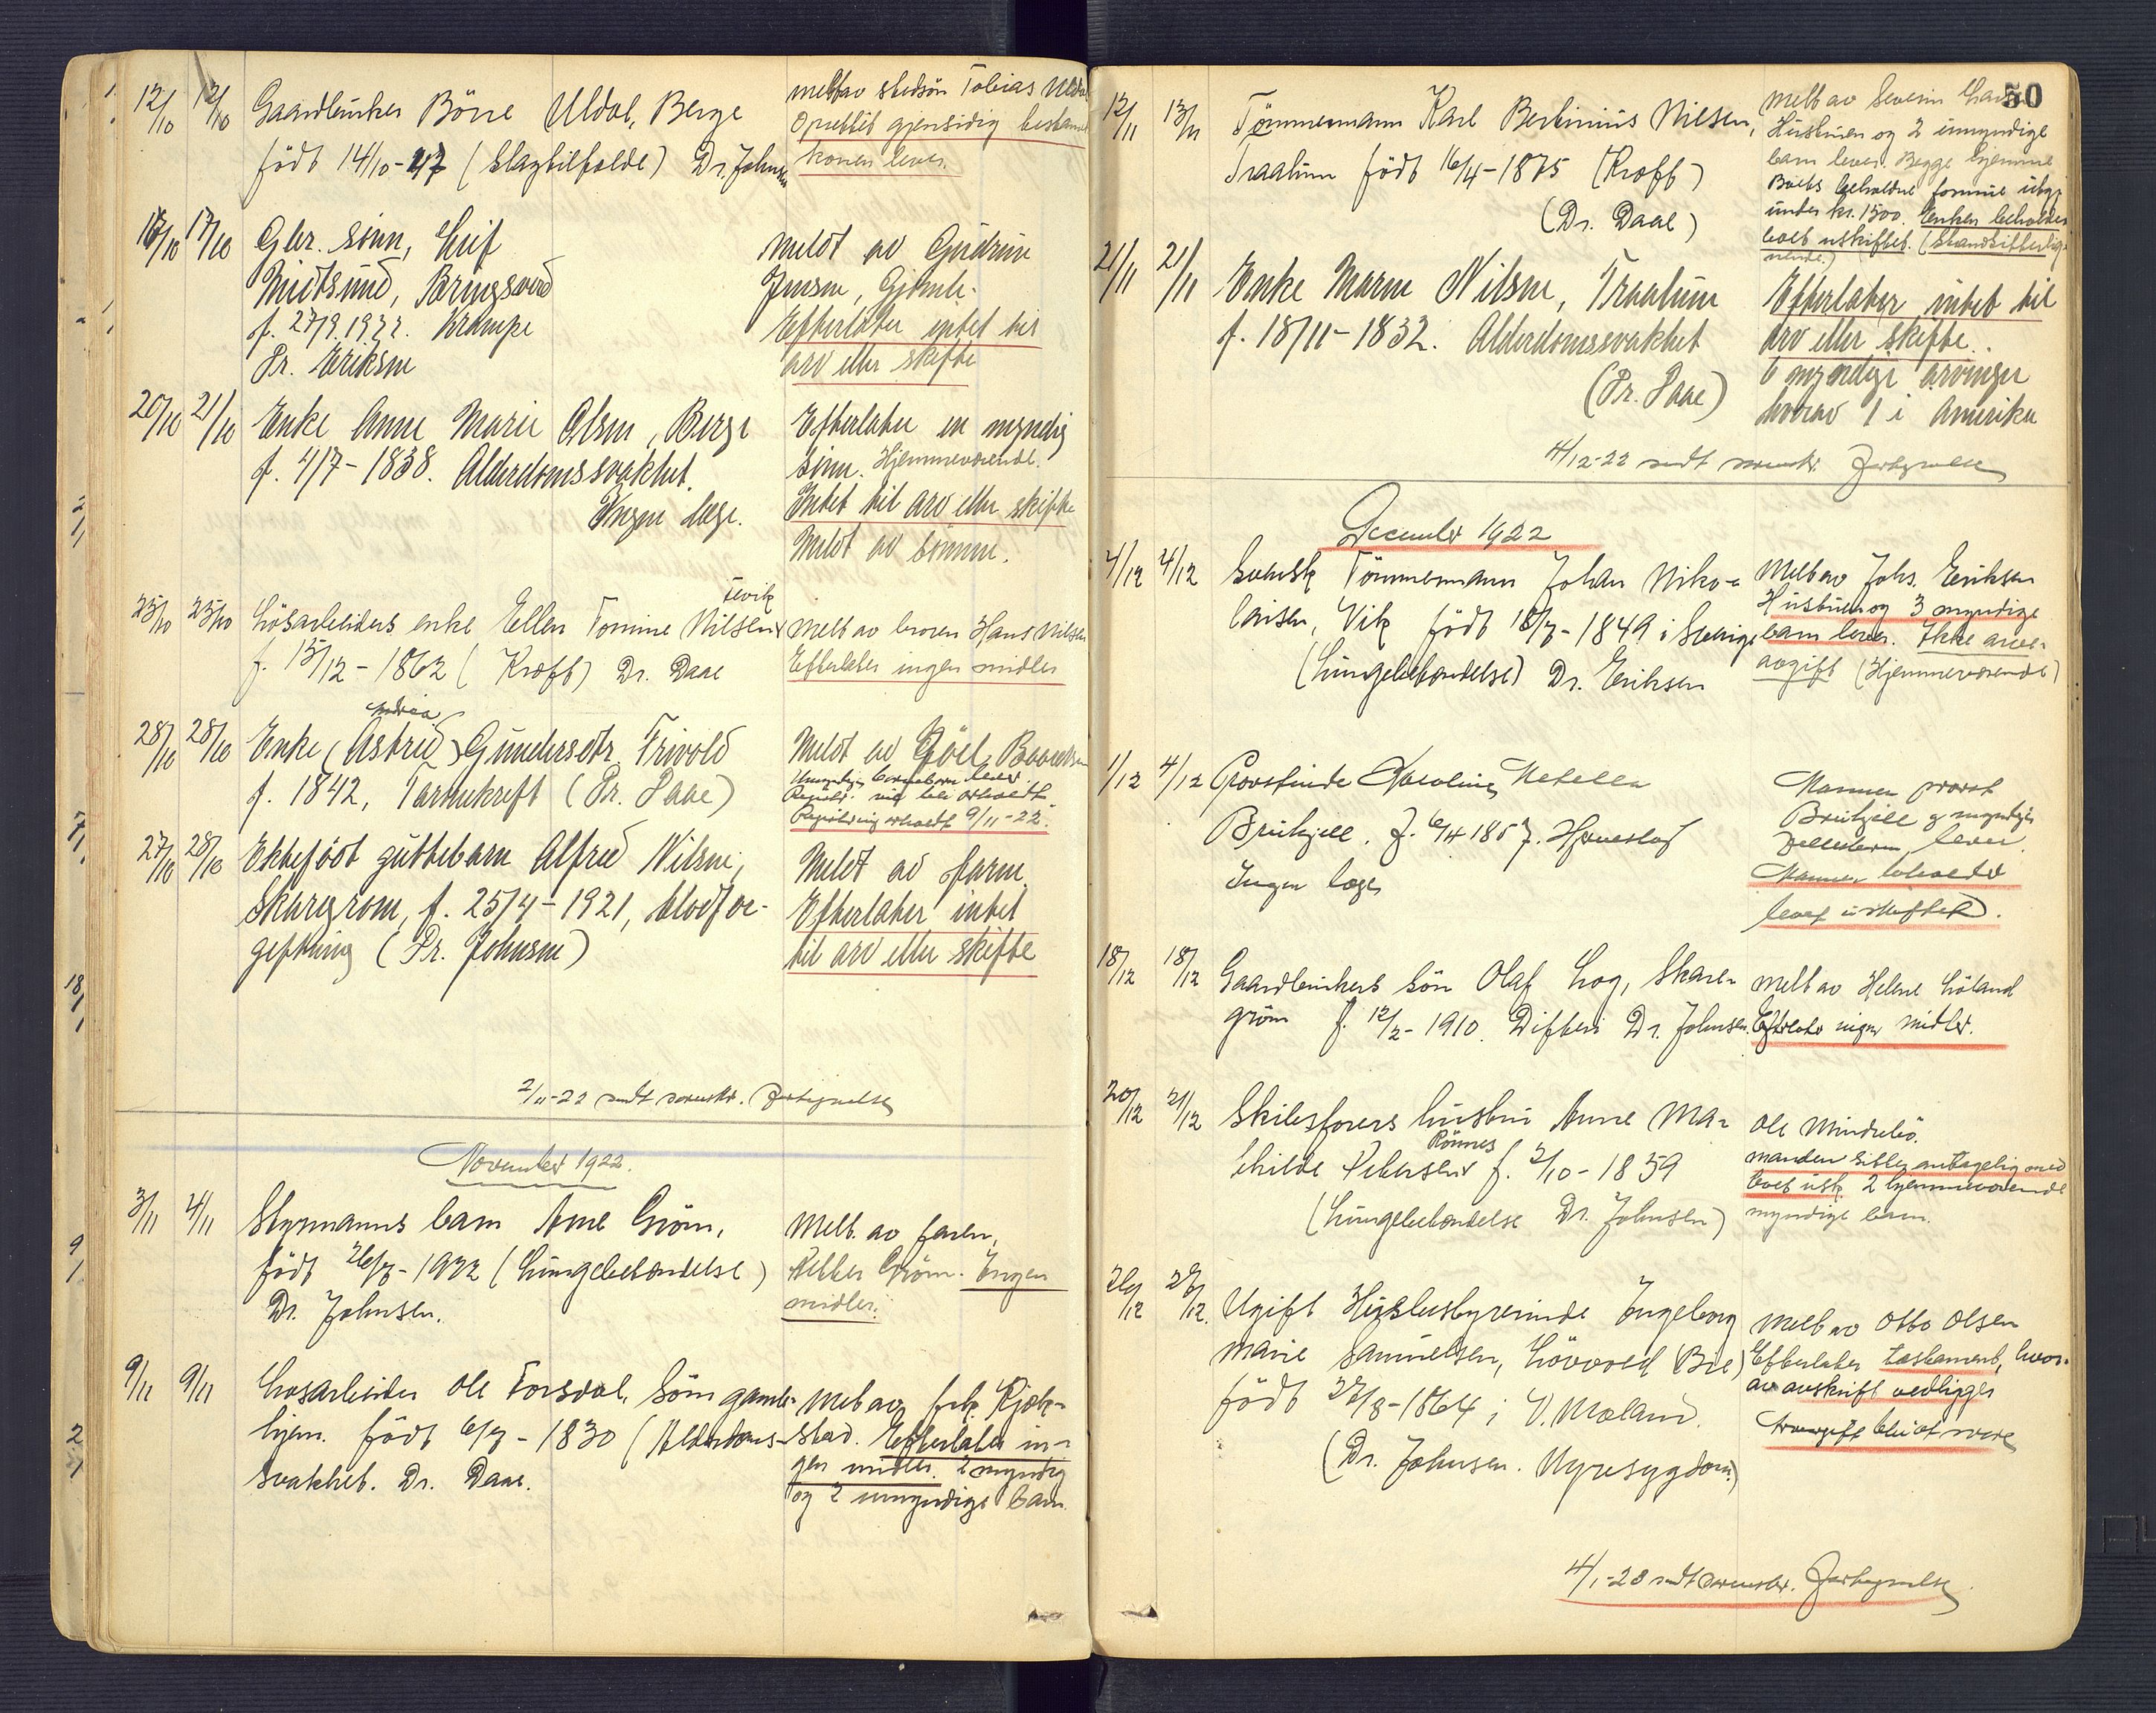 12/10 12/10 Gaardbruker Börre Uldal, Berge
födt 14/10-47 (Slagtilfælde) Dr. Johnsen
meldt av stedsön Tobias
Oprettet gjensidig testament
konen lever.
16/10 17/10 Gbr. sönn, Leif
Midtsund, Bringsværd
f. 27/9.1922. Krampe
Dr. Eriksen
meldt av Gudrun
Jensen,
Efterlater intet til
arv eller skifte
20/10 21/10 Enke Anne Marie Olsen, Berge
f. 4/7-1838. Alderdomssvakhet.
Ingen læge.
Efterlater en myndig
sönn. Hjemmeværende.
Intet til arv eller skifte
Meldt av sönnen.
25/10 25/10 Lösarbeiders enke Ellen Tomine Nilsen
Fevik
f. 15/12-1862 (Kræft) Dr. Daae
meldt av broren Hans Nilsen
Efterlater ingen midler
Andrea
28/10 28/10 Enke (Astrid) Gundersdtr. Trivold
f. 1842, Tarmekreft (Dr. Daae)
Meldt av Gjöel
Umyndige barnebarn lever.
9/11-22.
27/10 28/10 Ektefödt guttebarn Alfred Nilsen,
Skaregrøm, f. 25/4-1921, blodfor-
giftning (Dr. Johnsen)
Meldt av faren
Efterlater intet
til arv eller skifte
2/11-22 sendt sorenskr. fortegnelse
November 1922.
3/11 4/11 Styrmanns barn Arne Gröm,
födt 26/7-1922 (Lungebetændelse)
Dr. Johnsen.
Meldt av faren,
Petter Gröm. Ingen
midler.
9/11 9/11 Løsarbeider Ole Torsdal, Söm gamle-
hjem. födt 6/7-1830 (Alderdoms-
svakhet. Dr. Daae.
Meldt av frk. Kjøk-
stad. Efterlater in-
gen midler. 2 myndig
og 2 umyndige barn.
50
12/11 13/11 Tömmermann Karl Bertinius Nilsen,
Traalum födt 16/4-1875 (Kræft)
(Dr. Daae)
meldt av Severin
Hustruen og 2 umyndige
barn lever. Begge hjemme
Boets beholdne formue utgj.
under kr. 1500. Enken beholder
boet uskiftet.
21/11 21/11 Enke Maren Nilsen, Traalum
f. 18/11-1832. Alderdomssvakhet
(Dr. Daae)
Efterlater intet til
arv eller skifte.
6 myndige arvinger
hvorav 1 i Amerika
4/12-22 sendt sorenskr. fortegnelse
December 1922
4/12 4/12 Svensk Tömmermann Johan Niko-
laisen, Vik födt 18/7-1849 i Sverige
(Lungebetændelse) Dr. Eriksen
Meldt av Johs. Eriksen
Hustruen og 3 myndige
barn lever. Ikke arve-
avgift (Hjemmeværende)
1/12 4/12 Provstinde Karoline
Bruhjell. f. 6/4 1857. Hjerneslag
Ingen læge
Mannen provst
Bruhjell og myndige
fellesbarn lever.
Mannen beholder
boet uskiftet.
18/12 18/12 Gaardbrukers sön Olaf Log, Skare-
gröm f. 12/2-1910. Difteri Dr. Johnsen.
meldt av Helene Löland
Efterlater ingen midler.
20/12 21/12 Skibsförers hustru Anne Ma-
thilde Petersen f. 2/10-1859
Rönnes
(Lungebetændelse Dr. Johnsen)
Ole Mindrebö.
manden sitter antagelig med
boet usk. 2 hjemmeværende
myndige barn.
26/12 28/12. Ugift Husbestyrerinde Ingeborg
Marie Samuelsen, Lövvold (Bie)
födt 27/8-1864 i V. Moland.
(Dr. Johnsen. Nyresygdom)
meldt av Otto Olsen
Efterlater testament, hvor-
av avskrift vedligger
Arveavgift blir at svare
4/1-23 sendt sorenskr. fortegnelse